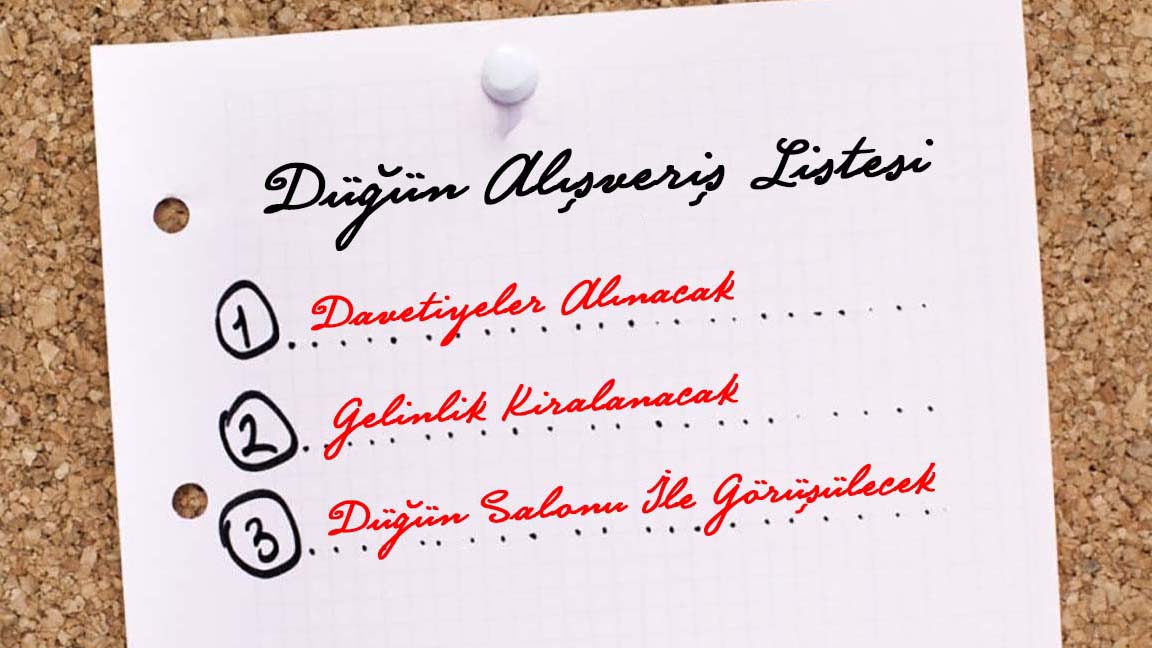 Düğün Alışveriş Listesi
1 Davetiyeler Alınacak
2 Gelinlik Kiralanacak
3 Düğün Salonu İle Görüşülecek